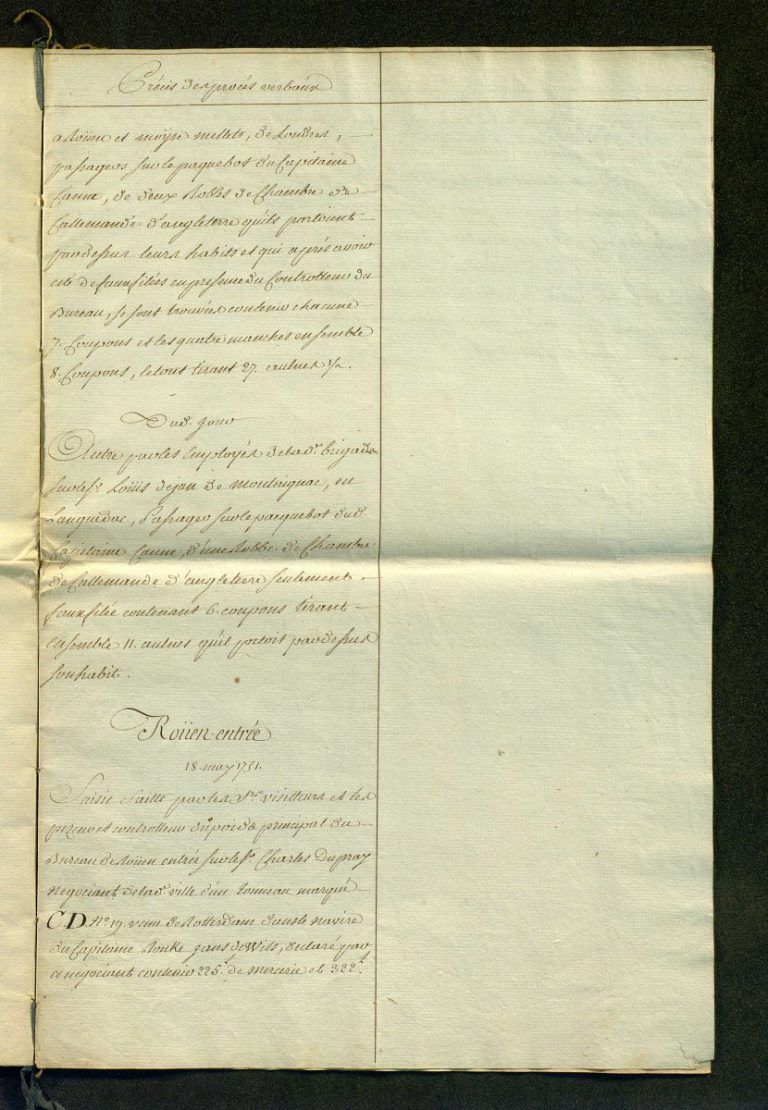 Précis des procés verbaux
a Roüen et moyse mellets, de Londres,
passagers sur le paquebot du Capitaine
Canne, de deux Robbes de Chambre de
Callemande d'angleterre qu'ils portoient
pardessus leurs habits et qui aprés avoir
eté defaufilées en presence du Controlleur du
Bureau, se sont trouvées contenir chacune
7. Coupons et les quatre manches ensemble
8. Coupons, le tout tirant 27. aulnes ½.
Dud. jour
Autre par les Employés de lad.e brigade
sur le s.r Loüis dejean de montaignac, en
Languedoc, Passager sur le pacquebot dud.
Capitaine Canne, d'une Robbe de Chambre
de Callemande d'angleterre seulement
faufilée contenant 6. coupons tirant
ensemble 11. aulnes qu'il portoit pardessus
son habit.
Roüen entrée
18. may 1751.
Saisie faitte par les S.rs visitteurs et les
receveur controlleur du poids principal du
Bureau de Roüen entrée sur le s.r Charles Dupray
negociant de lad.e ville d'un tonneau marqué
CD. N.o 19. venu de Rotterdam dans le navire
du Capitaine Rouke jans de Wits, declaré par
ce negociant contenir 225.t de mercerie et 322.t